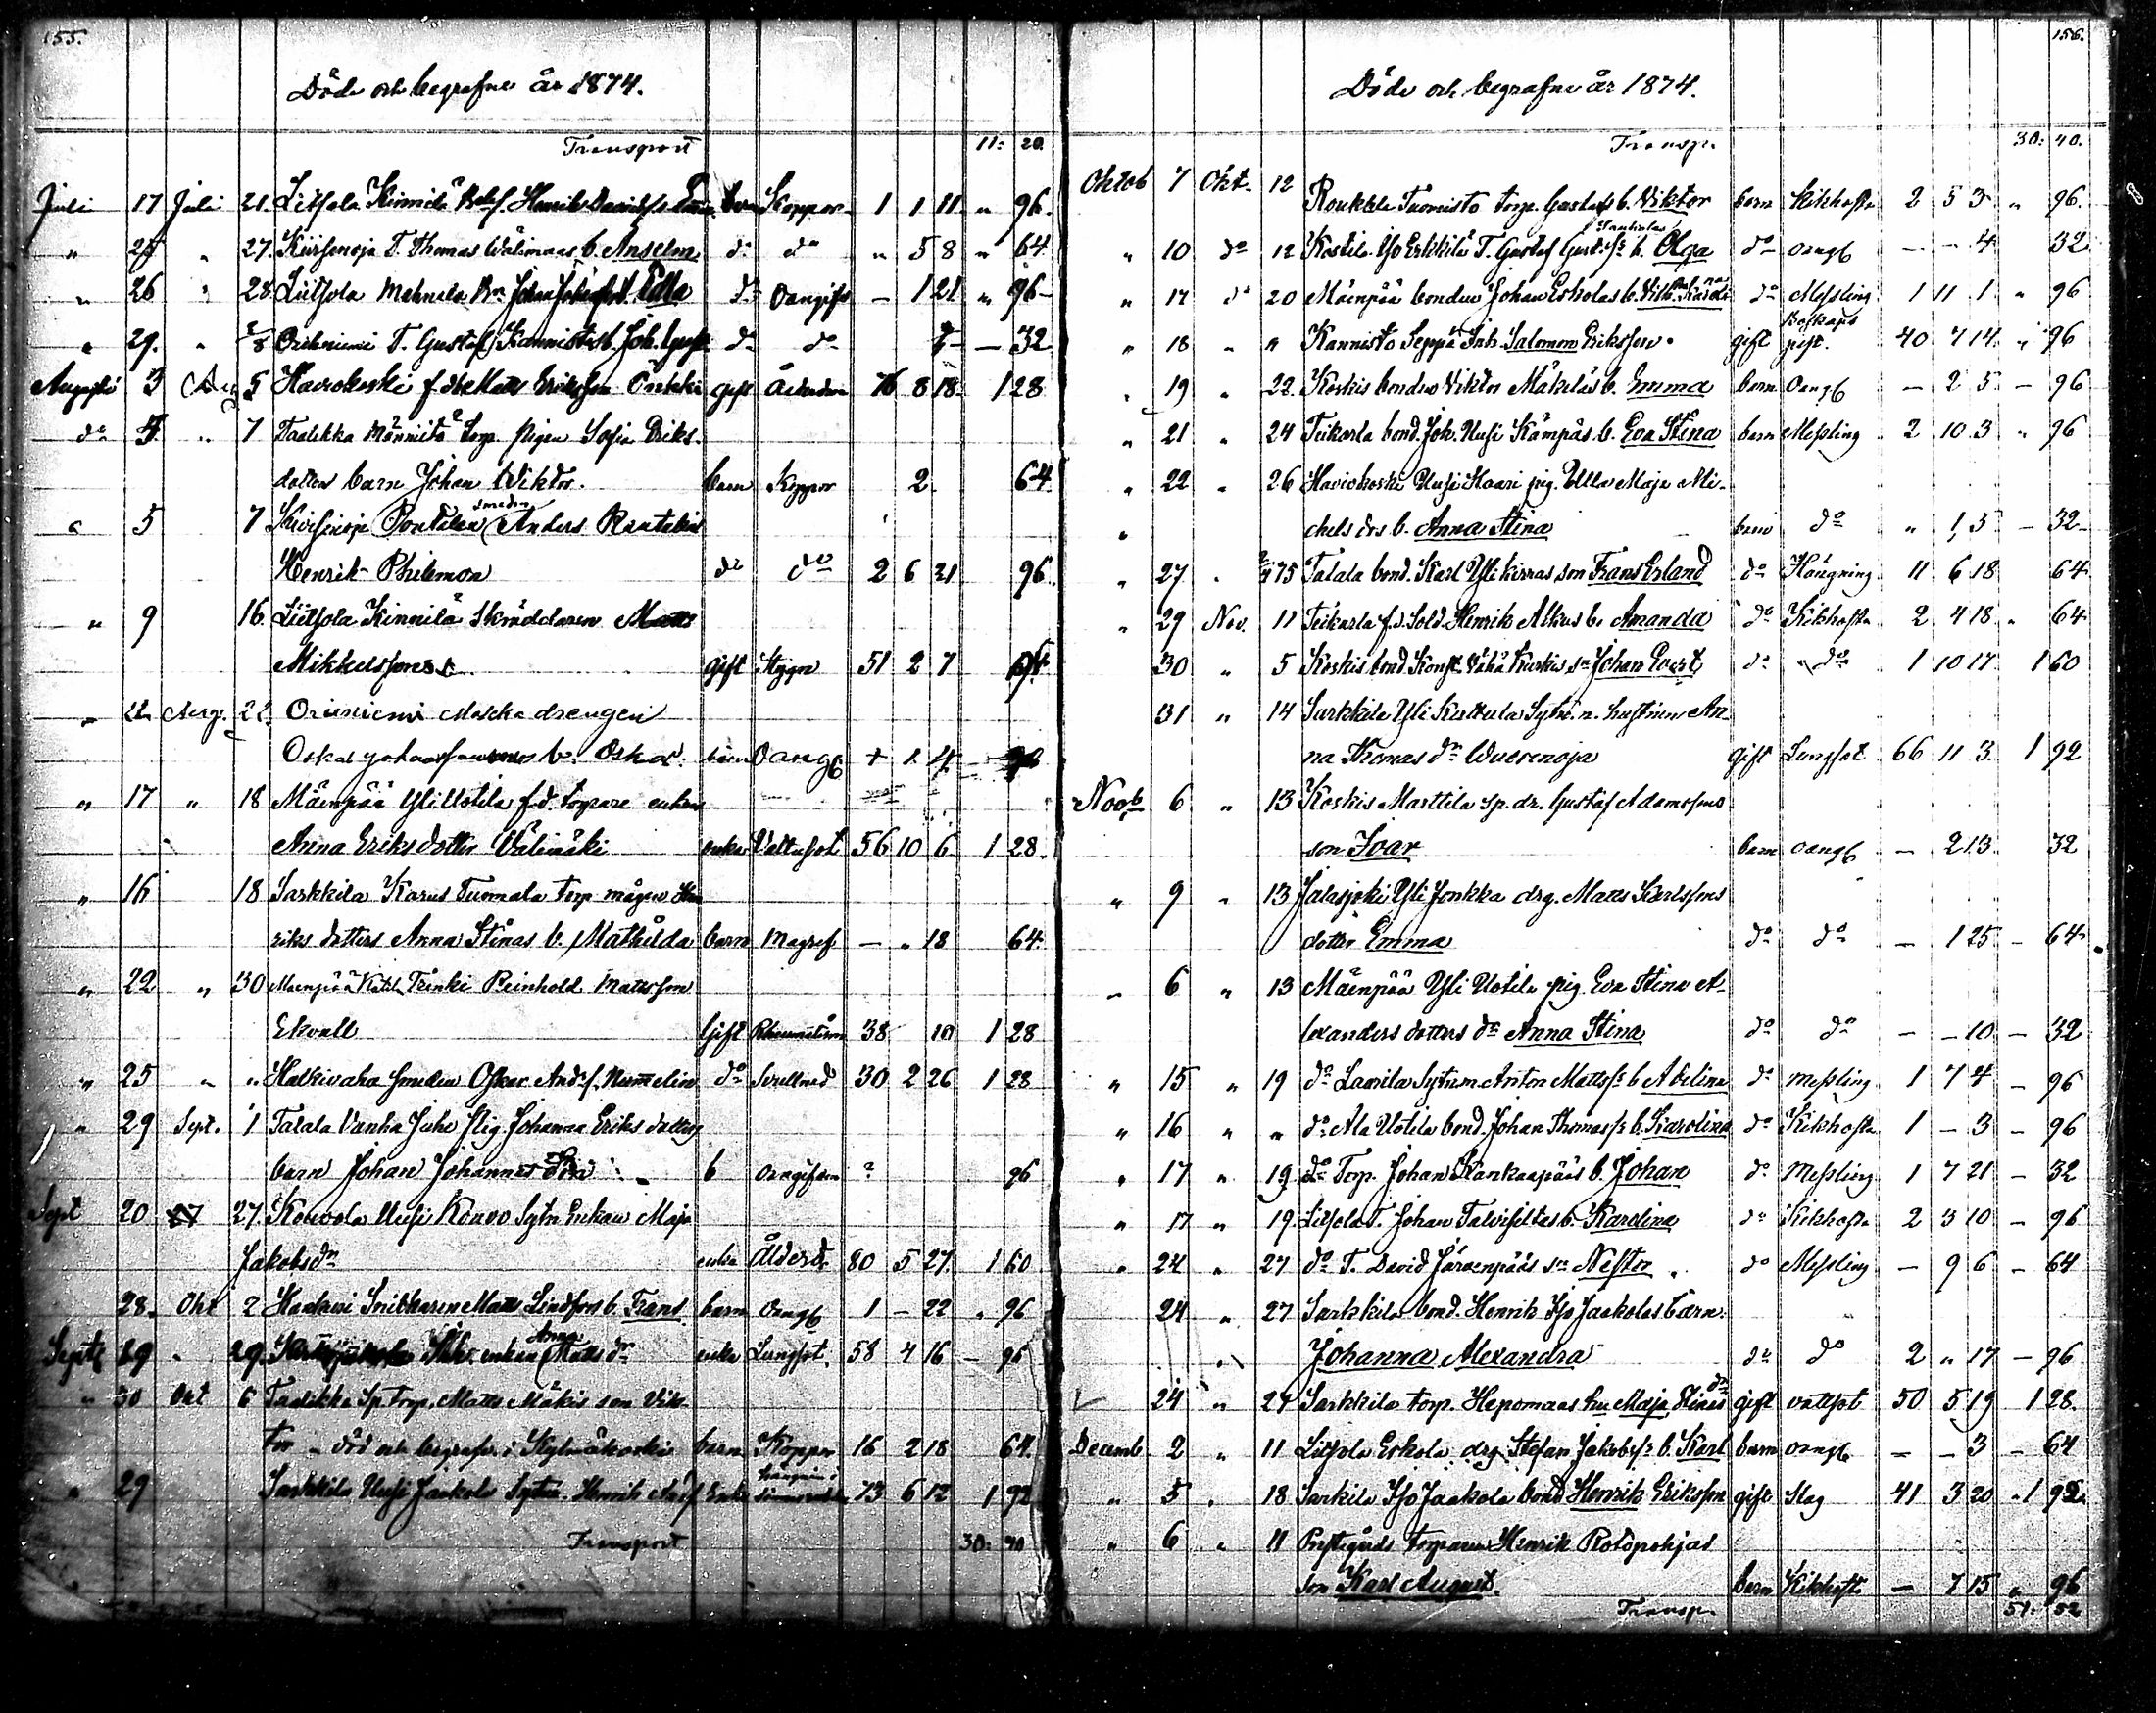 155.
Döde och begrafne år 1874.
Transport 11: 20.
Juli 17 Juli 21. Liitsola Kinnilä Henrik Davids barn Koppor 1 1 11 " 96.
" 25 " 27. Kivisenoja T. Thomas Välimaas b. Anselm do do " 5 8 " 64
" 26 " 28. Liitsola Mahnala Johan Edla do Oangifv — 1 21 " 96
" 29. " 2/8 Oriniemi T. Gustaf Kannistos b. Joh. Gust. do do — 32
Augusti 3 Aug 5 Haviokoski f. Matts Eriksson gift 76 8 18 1 28
do 4 " 7 Taalikka Männistö Torp. pigan Sofia Eriks-
dotters barn Johan Viktor. barn Koppor 2 64
5 7 Kivisenoja Ponkalan smeden Anders Rantalas
Henrik Philemon do do 2 6 21 96.
" 9 16. Liitsola Kinnilä Skräddaren Matts
Mikkelsson gift Stygn 51 2 7
" 22 Aug. 22. Oriniemi Maskka drengen
Oskar Johanssons b. Oskar. barn Oangf 1 4
" 17 " 18 Mäenpää Yli Uotila f.d. torpare enkan
Anna Eriksdotter Välimäki enka Vattusot 56 10 6 1 28.
" 16 18 Sarkkila Karus Tuomala torp mågen Hen
riks dotters Anna Stinas b. Mathilda barn Magref — " 18 64.
" 22 " 30 Mäenpää Trinki Reinhold Mattsson
Ekvall Gift Rheumatism 38 10 1 28
" 25 " " Halkivaha smeden Oskar And.s. Nummelin do Svullnad 30 2 26 1 28
" 29 Sept. 1 Talala Vanha Juho Johanna Eriks dotters
barn Johan Johannes b oangifven ? 96
Sept 20 27 Kouvola Uusi Kouvo Sytn Enkan Maja
Jakobsdr enka Ålderd. 80 5 27. 1 60
28. Okt 2 Matts Lindfors b. Frans barn Oangf 1 — 22 " 96
Sept 29 " 29. enkan Anna Matts dr enka Lungsot. 58 4 16 — 96
" 30 Okt 6 Taalikka Sp torp. Matts Mäkis son Vik-
tor död och begrafv. i Kylmäkoski barn Koppor 16 2 18 64.
" 29 Sarkkila Uusi Jaakola Sytn. Henrik 73 6 12 1 92
Transport 30: 40
156.
Döde och begrafne år 1874.
Transp. 30: 40.
Oktob 7 Okt. 12 Roukkula Tuomisto torp. Gustafs b. Viktor barn Kikhosta 2 5 3 " 96.
" 10 do 12 Kostila Iso Erkkilä T. Gustaf Gust.s. b. Olga do oangf — — 4 32
" 17 do 20 Mäenpää bonden Johan Eskolas b. do Messling 1 11 1 " 96
" 18 " " Kannisto Seppä Inh. Salomon Eriksson. gift Boskaps pest. 40 7 14. " 96
" 19 " 22. Koskis bonden Viktor Mäkiläs b. Emma barn Oangf — 2 5 — 96
" 21 " 24 Teikarla bond. Joh. Uusi Kämpäs b. Eva Stina barn Messling 2 10 3 " 96
" 22 " 26 Haviokoski Uusi Knaari pig. Ulla Maja Mi-
" chels drs b. Anna Stina barn do " 1,5 — 32
" 27 " 75 Talala bond. Karl Ylikirras son Frans Erland do Hängning 11 6 18 64
" 29 Nov. 11 Teikarla f.d. Sold. Henrik Alkus b. Amanda do Kikhosta 2 4 18 " 64
30 " 5 Koskis bond Konst. Vähä Kurkis sn Johan Evert do do 1 10 17 1 60
31 " 14 Sarkkila Yli Kerttula Sytn. hustrun An-
na Thomas dr gift Lungsot 66 11 3. 1 92
Novb 6 " 13 Koskis Marttila sp. dr. Gustaf Adamssons
son Ivar barn oangf — 2 13 32
" 9 " 13 Jalasjoki Yli Jonkka drg. Matts Karlssons
dotter Emma do do — 1 25 — 64
" 6 " 13 Mäenpää Yli Uotila pig. Eva Stina A-
lexanders dotters dr Anna Stina do do — — 10 — 32
" 15 " 19 do Laurila Sytnm. Anton Mattss: b Adelina do messling 1 7 4 — 96
" 16 " " do Ala Uotila bond. Johan Thomass: b. Karolina do Kikhosta 1 — 3 — 96
" 17 " 19 do Torp. Johan Kankaapääs b. Johan do Messling 1 7 21 — 32
" 17 " 19 Liitsola T. Johan Talvisiltas b. Karolina do Kikhosta 2 3 10 — 96
" 24 " 27 do T. David Järvenpääs sn Nestor " do Messling — 9 6 — 64
24 " 27 Sarkkila bond. Henrik Iso Jaakolas barn:
Johanna Alexandra do do 2 " 17 — 96
24 " 27 Sarkkila torp. Hepomaas hu Maja Stina dr gift vattsot 50 5 19 1 28.
Decemb 2 " 11 Liitsola Eskola drg. Stefan Jakobss: b. Karl barn oangf — — 3 — 64
" 5 " 18 Sarkila Iso Jaakola bond Henrik Eriksson gift Slag 41 3 20 " 1 92
" 6 " 11 Prestgårds torparen Henrik Rotopohjas
son Karl August. barn Kikhosta — 7 15 " 96
Transp. 51: 52